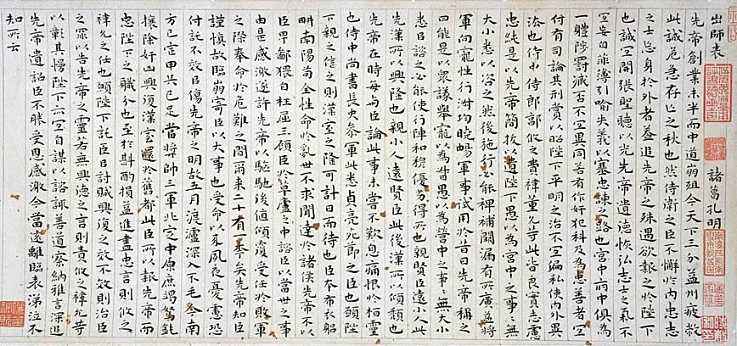 出師表
諸葛孔明
先帝創業未半而中道崩殂今天下三分益州疲敝
此誠危急存亡之秋也然侍衛之臣不懈於内忠志
之士忘身於外者蓋追先帝之殊遇欲報之於陛下
也誠宜開張聖聽以光先帝遺德恢弘志士之氣不
宜妄自菲薄引喻失義以塞忠諫之路也宮中府中俱為
一體陟罰臧否不宜異同若有作奸犯科及為忠善者宜
付有司論其刑賞以昭陛下平明之治不宜偏私使内外異
法也侍中侍郎郭攸之費禕董允等此皆良實志慮
忠純是以先帝簡拔以遺陛下愚以為宮中之事事無
大小悉以咨之然後施行必能裨補闕漏有所廣益將
軍向寵性行淑均曉暢軍事試用於昔日先帝稱之
曰能是以眾議舉寵以為督愚以為營中之事事無大小
悉以咨之必能使行陣和穆優劣得所也親賢臣遠小人此
先漢所以興隆也親小人遠賢臣此後漢所以傾頹也
先帝在時每與臣論此事未嘗不歎息痛恨於桓靈
也侍中尚書長史參軍此悉貞亮死節之臣也願陛
下親之信之則漢室之隆可計日而待也臣本布衣躬
耕南陽苟全性命於亂世不求聞達於諸侯先帝不以
臣卑鄙猥自枉屈三顧臣於草廬之中諮臣以當世之事
由是感激遂許先帝以驅馳後值傾覆受任於敗軍
之際奉命於危難之間爾來二十有一年矣先帝知臣
謹慎故臨崩寄臣以大事也受命以來夙夜憂慮恐
付託不效以傷先帝之明故五月渡瀘深入不毛今南
方已定甲兵已足當獎帥三軍北定中原庶竭駑鈍
攘除奸凶興復漢室還於舊都此臣所以報先帝而
忠陛下之職分也至於斟酌損益進盡忠言則攸之
禕允之任也願陛下託臣以討賊興復之效不效則治臣
之罪以告先帝之靈若無興德之言則責攸之禕允等
以彰其慢陛下亦宜自謀以諮諏善道察納雅言深追
先帝遺詔臣不勝受恩感激今當遠離臨表涕泣不
知所云